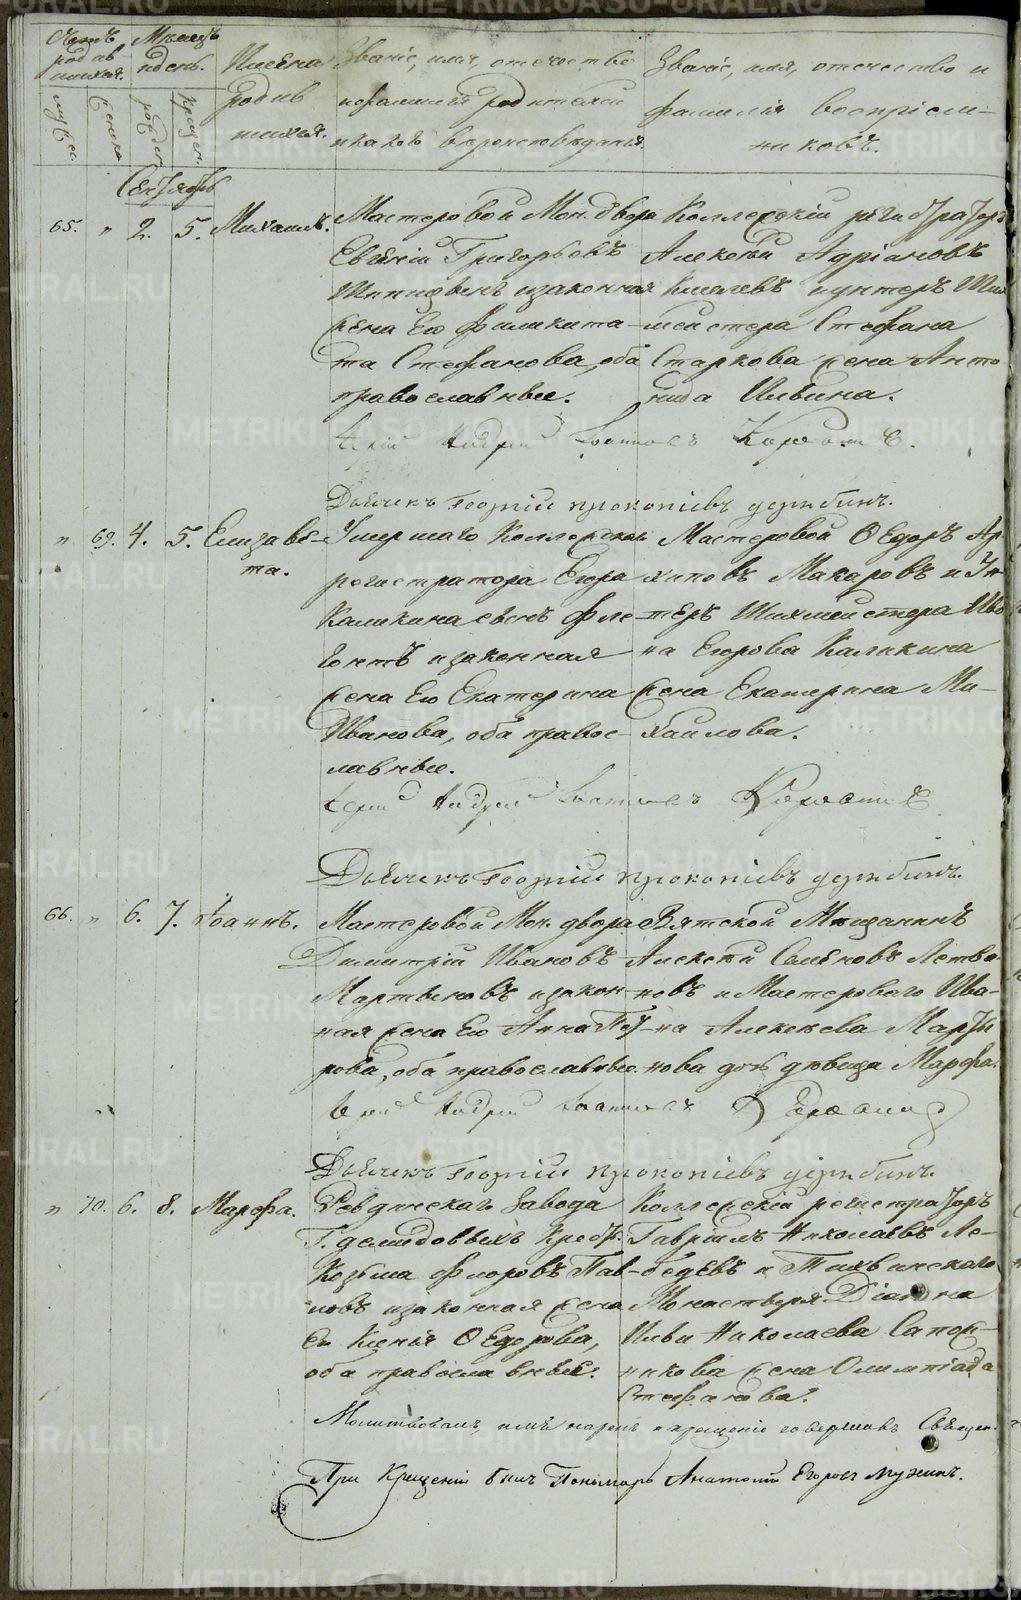 Счетъ родив-шихся.
Мѣсяцъ и день.
Имена родив шихся.
Званіе, имя, отечество
и фамилія родителей
и какого вѣроисповѣданія
Званіе, имя, отечество и
фамилія воспріем-
никовъ.
мужес.
женска
рожден.
крещен.
Сентябрь
65. " 2. 5. Михаилъ.
Мастеровой Мон. двора
Евгеній Григорьевъ
и законная
жена Его Филикита-
та Стефанова, оба
православные.
Коллежскій регистраторъ
Алексѣй Адріановъ
и унтеръ Ших
мейстера Стефана
Старкова жена Анто
нида Ильина.
Іерей Андрей Іоанновъ
Дьячекъ Георгій Прокопіевъ Дерябинъ.
" 69. 4. 5. Елизаве-
та.
Умершаго Коллежскаго
регистратора Егора
Каликина сынъ
и законная
жена Его Екатерина
Иванова, оба правос-
лавные.
Мастеровой Ѳедоръ Ар
хиповъ Макаровъ и Ун
теръ Шихмейстера Ива
на Егорова Каликина
жена Екатерина Ми-
хаилова.
Іерей Андрей Іоанновъ
Дьячекъ Георгій Прокопіевъ Дерябинъ.
66. " 6. 7. Іоаннъ.
Мастеровой Мон. двора
Димитрій Ивановъ
Мартыновъ и закон-
ная жена Его Анна Пет-
рова, оба православные.
Вятской Мещанинъ
Алексѣй Семеновъ Летва
новъ и Мастероваго Ива-
на Алексѣева Марты
нова дочь дѣвица Марфа.
Іерей Андрей Іоанновъ
Дьячекъ Георгій Прокопіевъ Дерябинъ.
" 70. 6. 8. Марфа.
Ревдинскаго Завода
Г. Демидовыхъ Крест.
Козьма Флоровъ Пав-
ловъ и законная жена
Ег Ксенія Ѳедорова,
оба православные.
Коллежскій регистраторъ
Гавріилъ Николаевъ Ле-
бедевъ и Тихвинскаго
Монастыря Діакона
Ильи Николаева Сапож-
никова жена Олимпіада
Стефанова.
Молитвовалъ, имя нарекъ и крещеніе совершилъ Священ.
При Крещеніи былъ Пономарь Анатолій Егоровъ Мухинъ.
METRIKI.GASO-URAL.RU